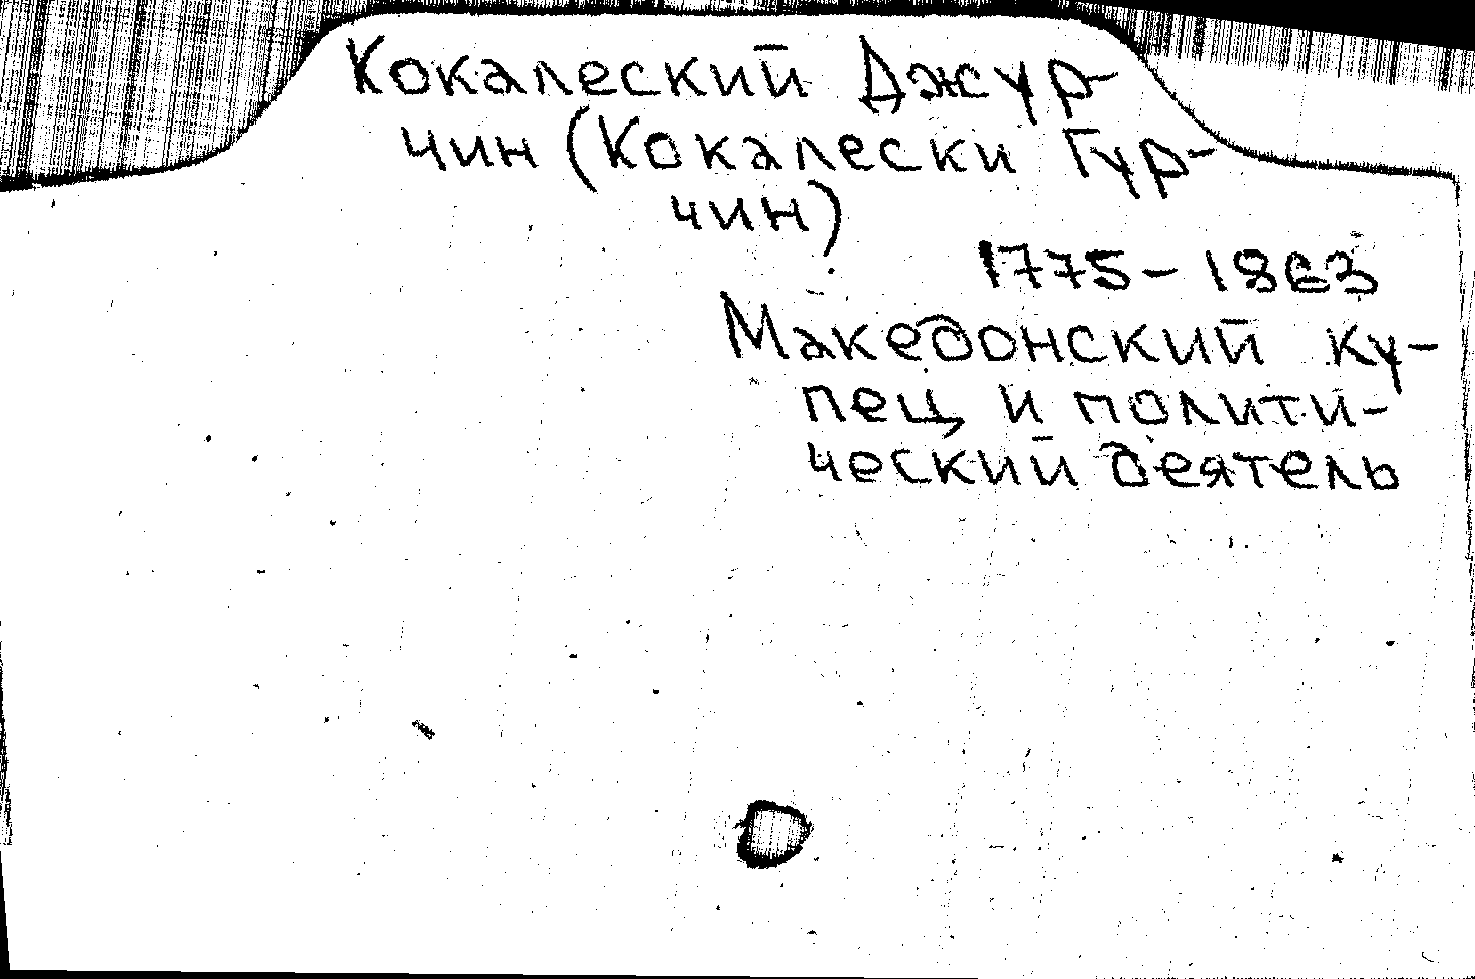 Кокалеский Джур-
чин (Кокалески Гур-
чин)
1775-1863
Македонский ку-
пец и полити-
ческий деятель